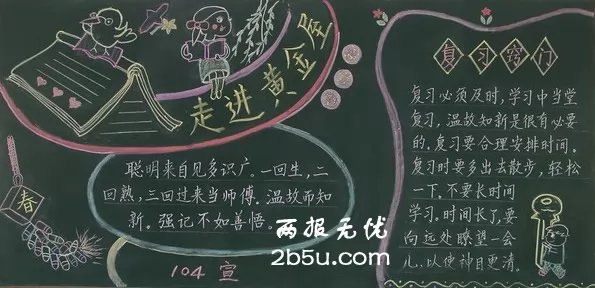 走进黄金屋
聪明来自见多识广。一回生，二
回熟，三回过来当师傅。温故而知
新。强记不如善悟。
春
104 宣
复习窍门
复习必须及时，学习中当堂
复习，温故知新是很有必要
的。复习要合理安排时间。
复习时要多出去散步，轻松
一下，不要长时间
学习。时间长了，要
向远处瞭望一会
儿，以使神目更清。
两报无忧
2b5u.com